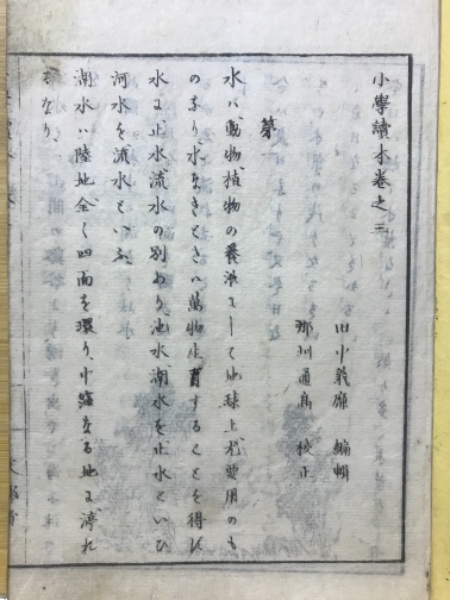 小學讀本卷之三
田中義廉 編輯
那珂通高 校正
第一
水ハ動物植物の養液にして地球上尤要用のも
のなり水なきときハ萬物生育することを得ず
水に止水流水の別あり池水湖水を止水といひ
河水を流水といふ
湖水ハ陸地全く四面を環り中窪なる地に渟れ
るなり